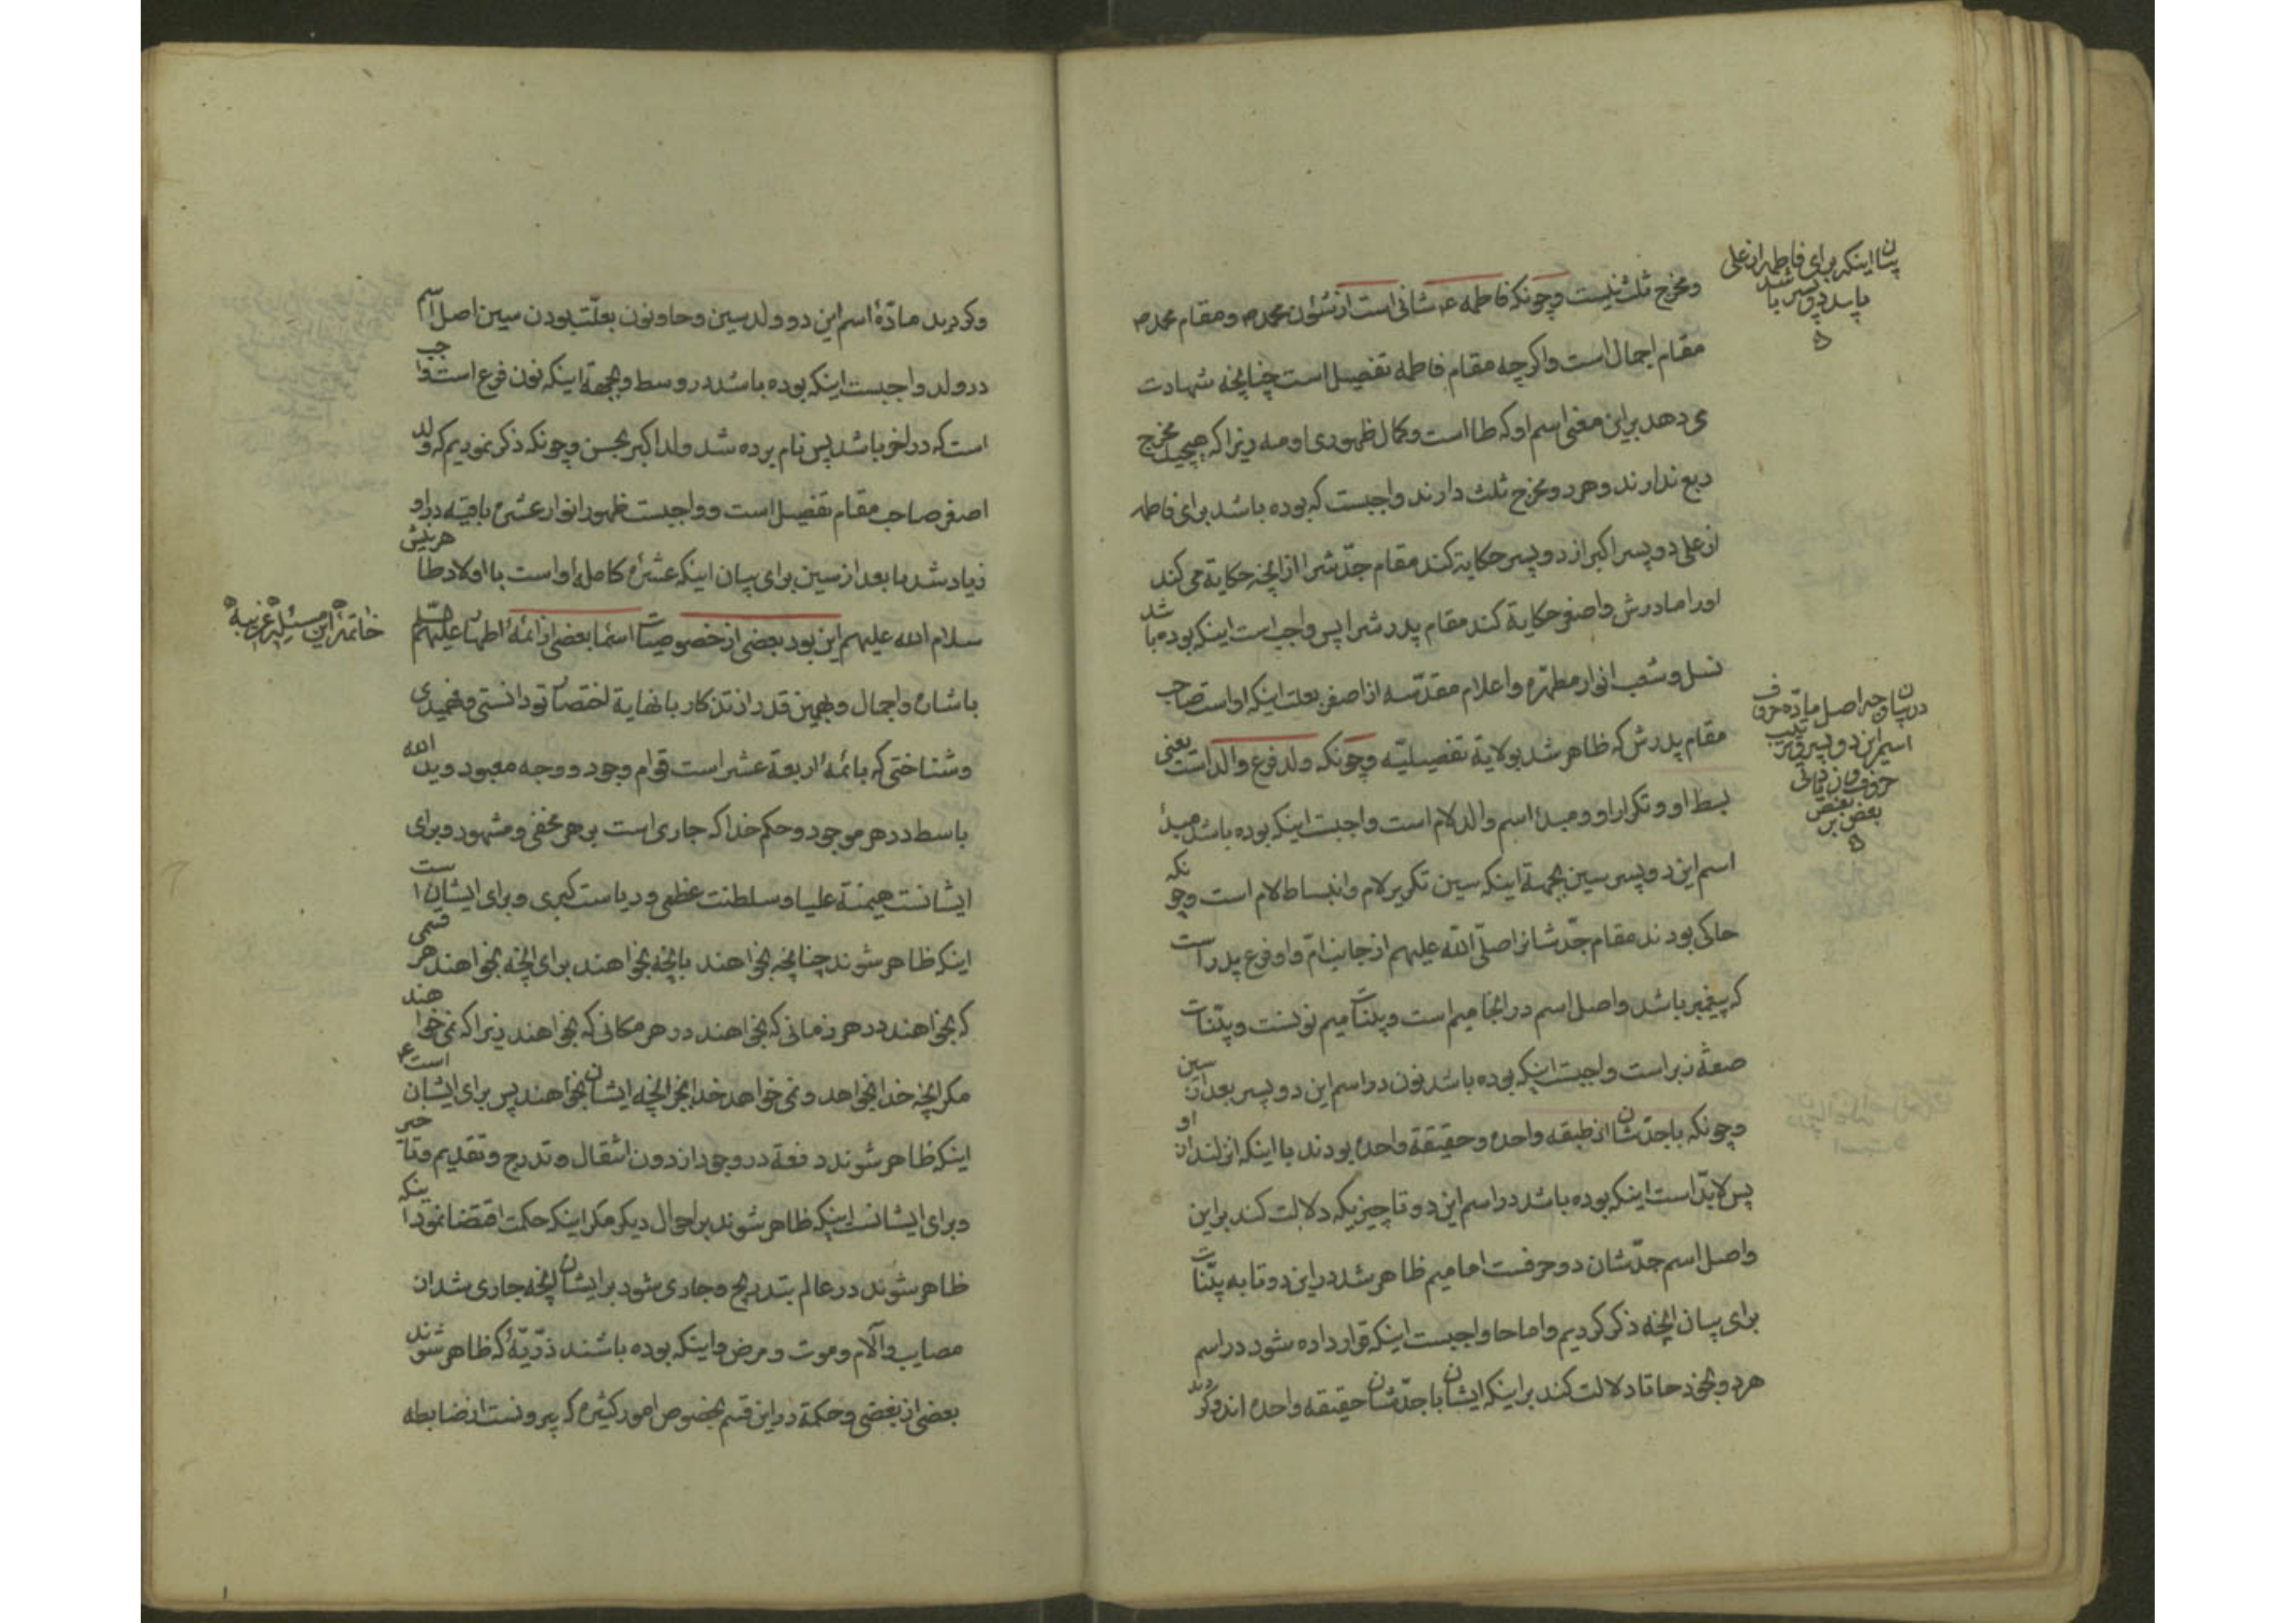 ومخرج ثلث نیست وچونکه فاطمه ع شانی است از شئون محمد ص ومقام محمد ص
مقام اجمال است واکرچه مقام فاطمه تفصیل است چنانچه شهادت
می دهد براین معنی اسم او که طا است وکمال ظهوری او مه زیرا که هیچیک مخرج
ربع ندارند وهردو مخرج ثلث دارند واجبست که بوده باشد برای فاطمه
از علی دو پسر اکبر از دو پسر حکایة کند مقام جدّش را از انچه حکایة می کند
اورا مادرش واصغر حکایة کند مقام پدرش را پس واجب است اینکه بوده باشد
نسل وشعب انوار مطهره واعلام مقدّسه از اصغر بعلت اینکه اواست صاحب
مقام پدرش که ظاهر شد بولایة تفصیلیّه وچونکه ولد فرع والد است یعنی
بسط او وتکرار او ومبدأ اسم والد لام است واجبست اینکه بوده باشد مبدأ
اسم این دو پسر سین بجهة اینکه سین تکریر لام وانبساط لام است وچونکه
حاکی بودند مقام جدّشانرا صلّی الله علیهم از جانب امّ واو فرع پدر است
که پیغمبر باشد واصل اسم در انجا میم است وبیّنات میم نونست وبیّنات
صفة زبر است واجبست اینکه بوده باشد نون در اسم این دو پسر بعد از سین
وچونکه با جدّشان از طبقه واحده وحقیقة واحده بودند با اینکه
پس لابدّ است اینکه بوده باشد در اسم این دو تا چیزیکه دلالت کند براین
واصل اسم جدّشان دو حرفست اما میم ظاهر شد در این دو تا به بیّنات
برای بیان انچه ذکر کردیم واما حا واجبست اینکه قرار داده شود در اسم
هردو بخود حا تا دلالت کند براینکه ایشان با جدّشان حقیقه واحده اند وکردید
بیان اینکه برای فاطمه از علی
باید دو پسر باشد
در بیان وجه اصل مادّه حروف
اسم این دو پسر وترتیب
حروف
بعض بر بعض
وکردید مادّهٔ اسم این دو ولد سین وحا ونون بعلّت بودن سین اصل اسم
در ولد واجبست اینکه بوده باشد در وسط وبجهة اینکه نون فرع است واجب
است که در اخر باشد پس نام برده شد ولد اکبر بحسن وچونکه ذکر نمودیم که ولد
اصغر صاحب مقام تفصیل است و واجبست ظهور انوار عشرهٔ باقیه در او
زیاد شد یا بعد از سین برای بیان اینکه عشرهٔ کامله او است با اولاد طاهرینش
سلام الله علیهم این بود بعضی از خصوصیّات اسماء بعضی از ائمهٔ اطهار علیهم
باشاره واجمال وبهمین قدر از تذکار با نهایة اختصار تو دانستی وفهمیدی
وشناختی که بائمهٔ اربعة عشر است قوام وجود و وجه معبود وید الله
باسط در هر موجود وحکم خدا که جاری است بر هر مخفی ومشهود وبرای
ایشانست هیمنهٔ علیا وسلطنت عظمی و ریاست کبری وبرای ایشان است
اینکه ظاهر شوند چنانچه بخواهند بانچه بخواهند برای انچه بخواهند هر قسمی
که بخواهند در هر زمانی که بخواهند در هر مکانی که بخواهند زیرا که نمی خواهند
مکر انچه خدا بخواهد ونمی خواهد خدا بجز انچه ایشان بخواهند پس برای ایشان است
اینکه ظاهر شوند دفعة در وجود از دون انتقال وتدرج وتقدیم وتاخیر
وبرای ایشانست اینکه ظاهر شوند بر احوال دیکر مکر اینکه حکمت اقتضا نمود اینکه
ظاهر شوند در عالم بتدریج وجاری شود بر ایشان انچه جاری شد از
مصایب وآلام وموت ومرض واینکه بوده باشند ذرّیّهٔ که ظاهر شوند
بعضی از بعضی وحکمة در این قسم بخصوص امور کثیره که بیرونست از ضابطه
خاتمهٔ این مسئلهٔ غریبه